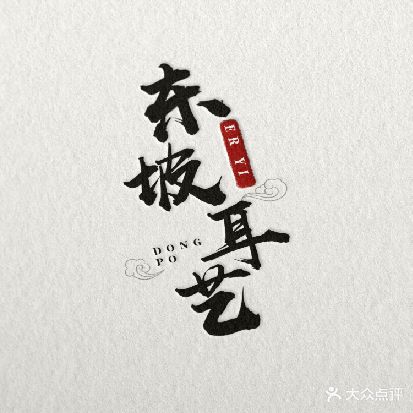 东坡
耳艺
ER YI
DONG
PO
大众点评